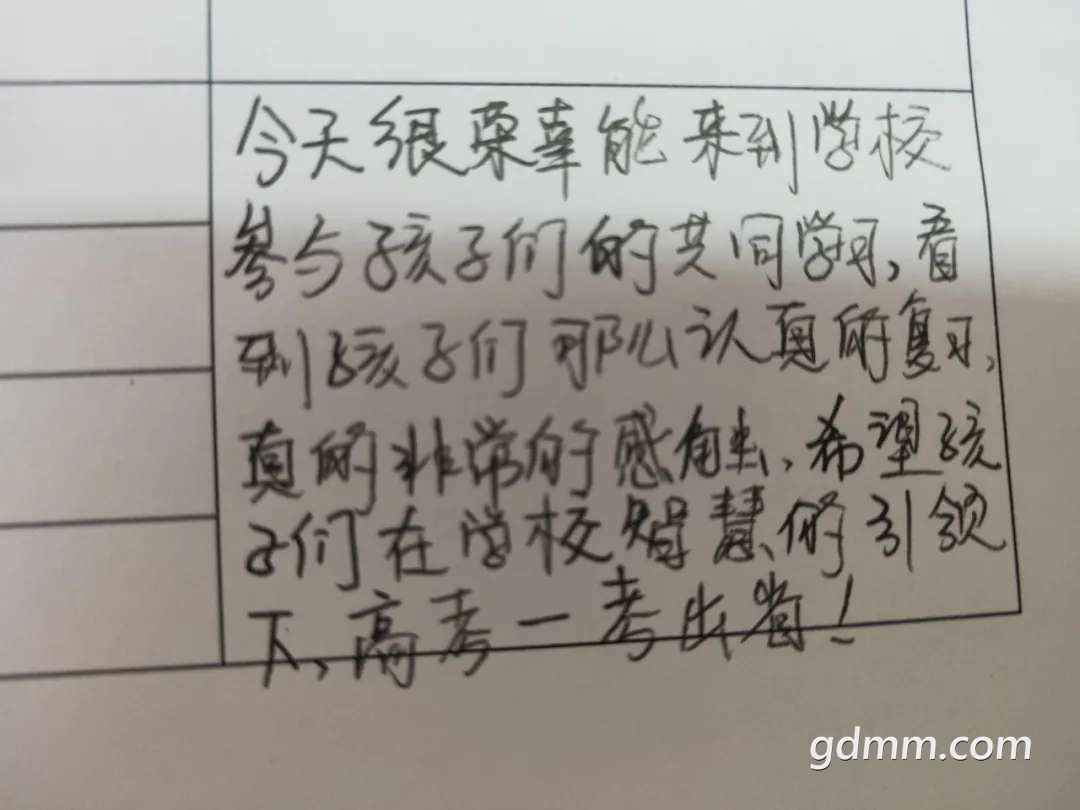 今天很荣幸能来到学校
参与孩子们的共同学习,看
到孩子们那么认真的复习,
真的非常的感触、希望孩
子们在学校智慧的引领
下、高考一考出省!
gdmm.com